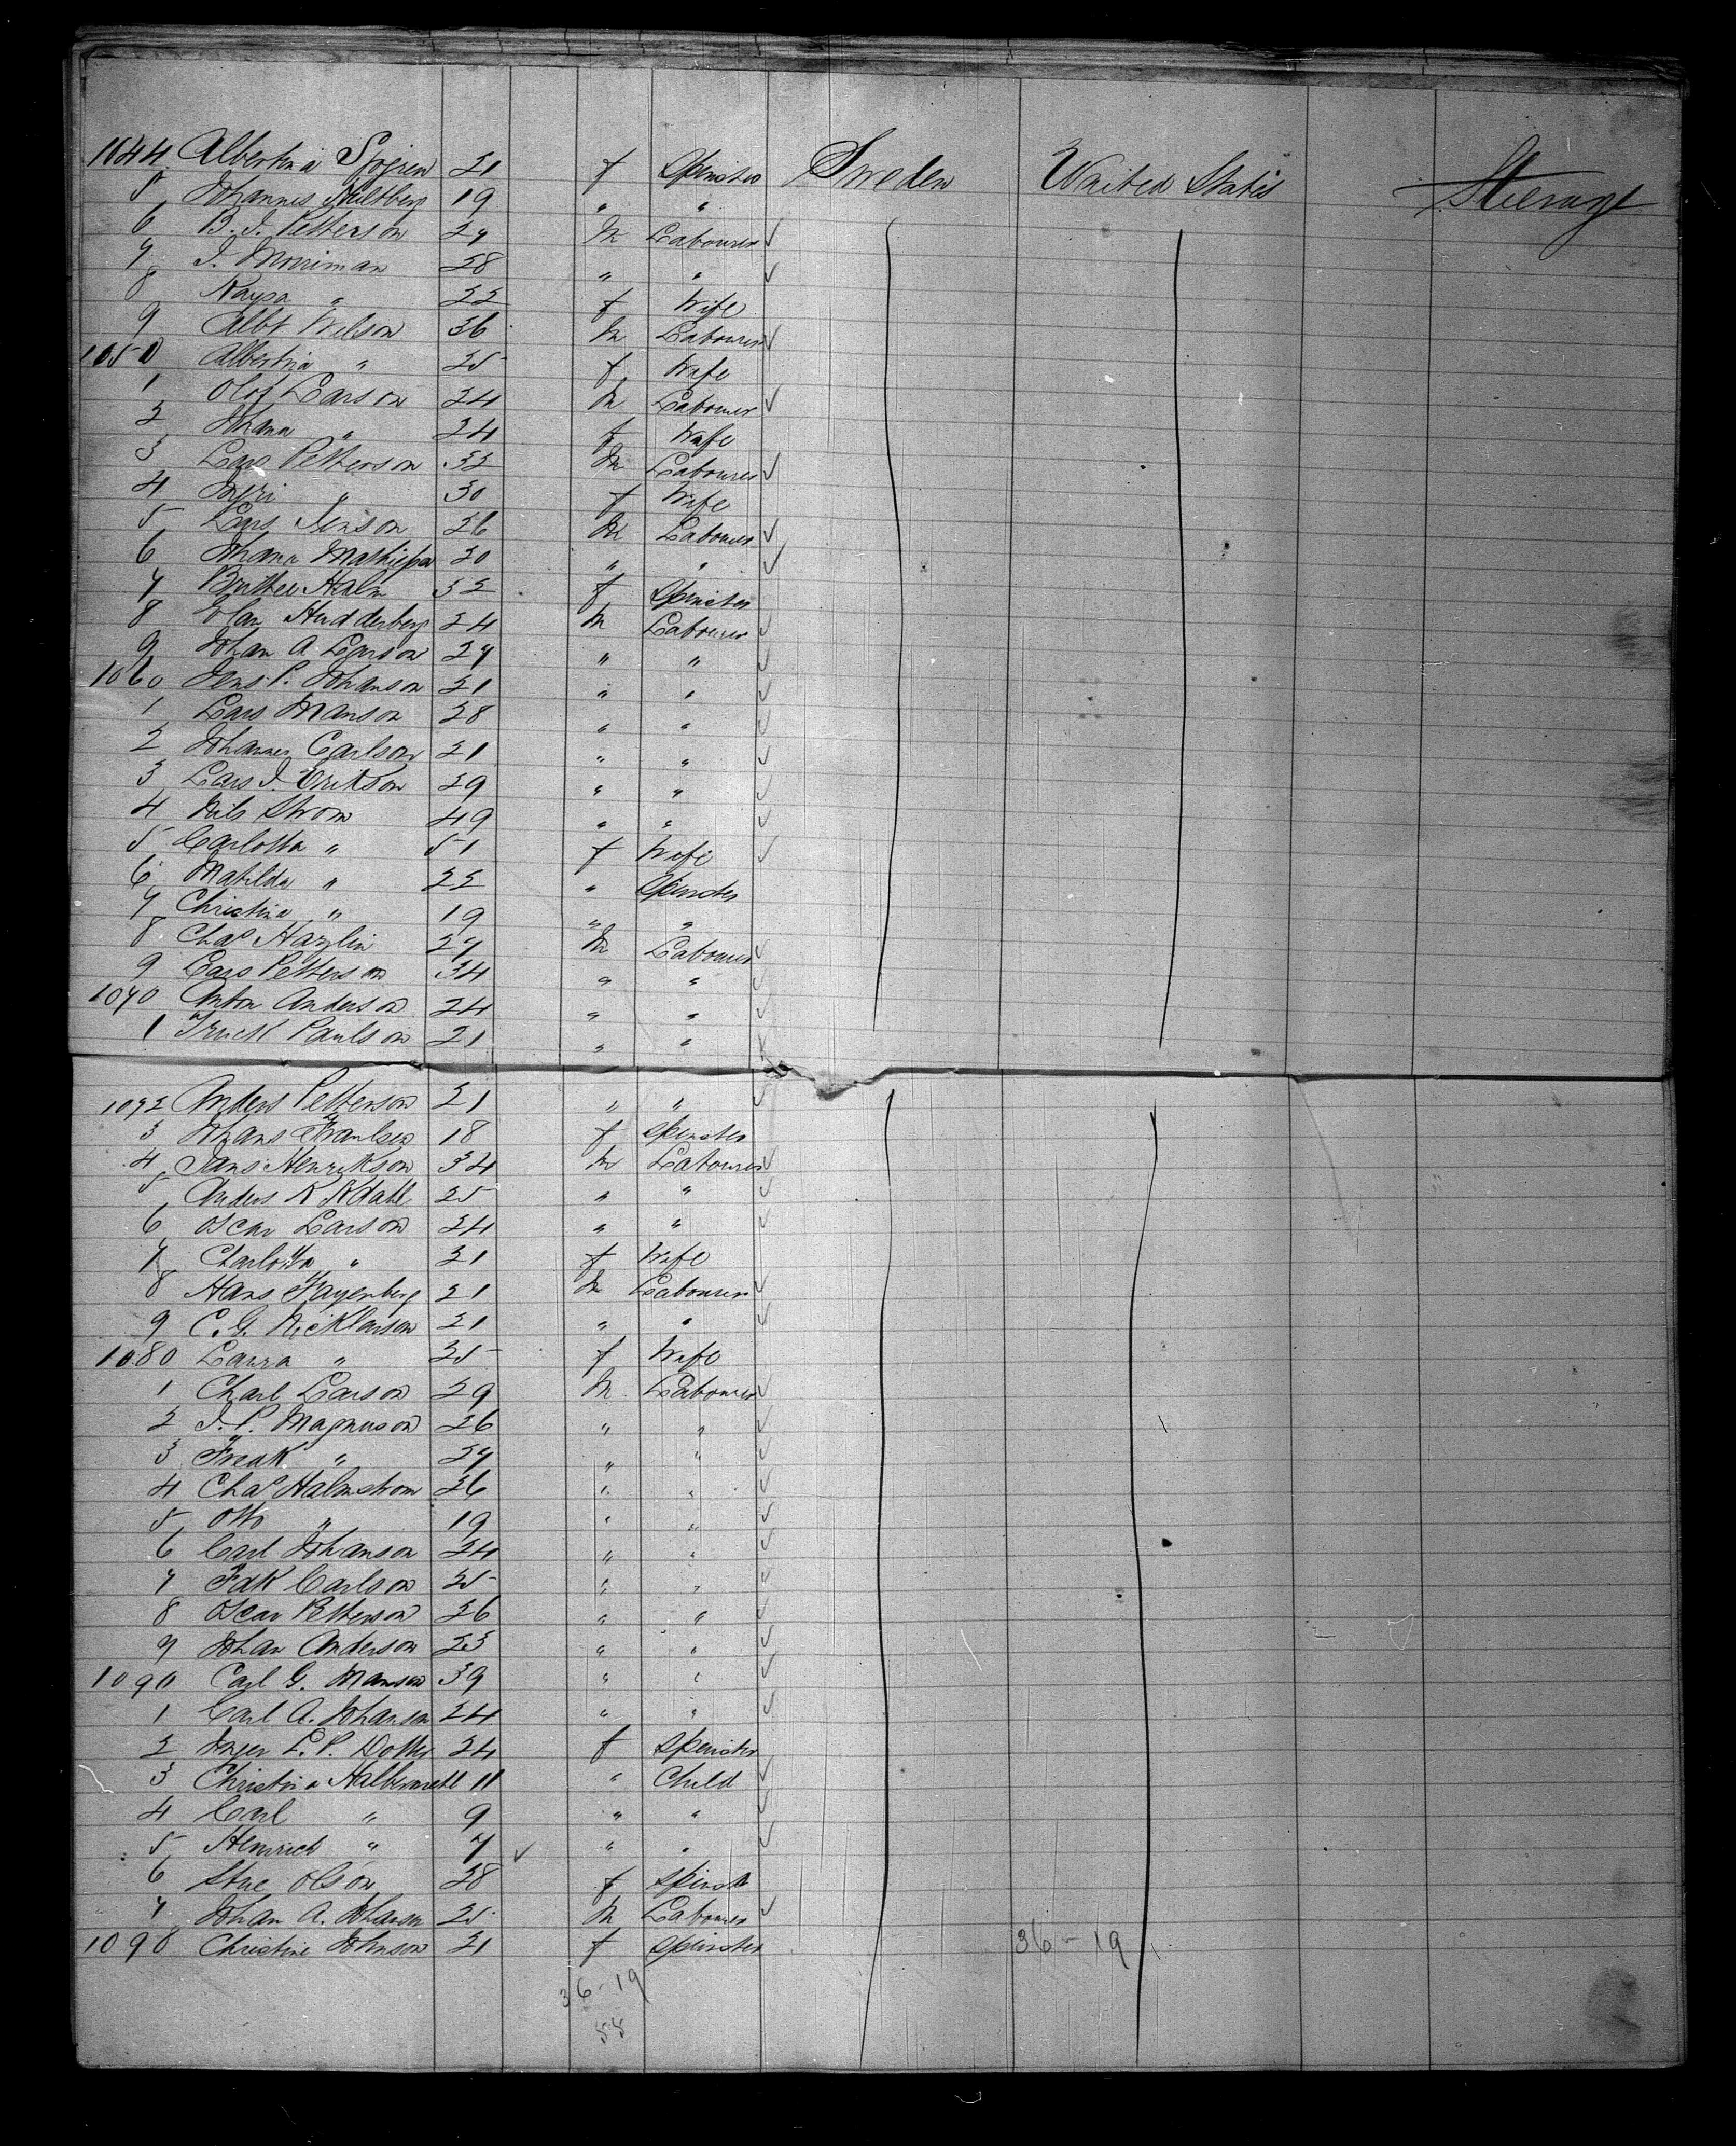 1044 Albertina Sjogren 21 f Spinster Sweden United States Steerage
5 Johannes Hultberg 19 " "
6 B. J. Petterson 27 M Labourer ✓
7 J. Morriman 28 " " ✓
8 Kaysa " 22 f Wife
9 Albt Wilson 36 M Labourer ✓
1050 Albertina " 25 f Wife
1 Olof Larson 24 M Labourer ✓
2 Johana " 24 f Wife
3 Lars Petterson 32 M Labourer ✓
4 " 30 f Wife
5 Lars Jenson 26 M Labourer ✓
6 Johana 20 " " ✓
7 Halm 32 f Spinster
8 Hudderberg 24 M Labourer ✓
9 Johan A Larson 27 " " ✓
1060 Jens P. Johanson 21 " " ✓
1 Lars Manson 28 " " ✓
2 Johannes Carlson 21 " " ✓
3 Lars J. Erikson 29 " " ✓
4 Nils Strom 49 " " ✓
5 Carlotta " 51 f Wife ✓
6 Matilda " 22 " Spinster
7 Christina " 19 " "
8 Chas Hazlin 27 M Labourer ✓
9 Lars Petterson 34 " " ✓
1070 Anton Anderson 24 " " ✓
1 Paulson 21 " " ✓
1072 Anders Petterson 21 " " ✓
3 18 f Spinster
4 Jans Henrikson 34 M Labourer ✓
5 Anders K 25 " " ✓
6 Oscar Larson 24 " " ✓
7 Charlotta " 21 f Wife
8 Hans Fagerberg 21 M Labourer ✓
9 C. G. Nicklauson 21 " " ✓
1080 Laura " 25 f Wife
1 Charl Larson 29 M Labourer ✓
2 J. P. Magnuson 26 " " ✓
3 Fredk " 27 " " ✓
4 Chas Halmstrom 26 " " ✓
5 Otto " 19 " " ✓
6 Carl Johanson 24 " " ✓
7 Fdk Carlson 25 " " ✓
8 Oscar Petterson 26 " " ✓
9 Johan Anderson 23 " " ✓
1090 Carl G. Manson 39 " " ✓
1 Carl A. Johanson 24 " " ✓
2 L. P. Dotter 24 f Spinster
3 Christina 11 " Child ✓
4 Carl " 9 " " ✓
5 Henrich " 7 ✓ " " ✓
6 Olson 28 f Spinst
7 Johan A. Johanson 25 M Labourer ✓
1098 Christine Johnson 21 f Spinster 36-19
36-19
55